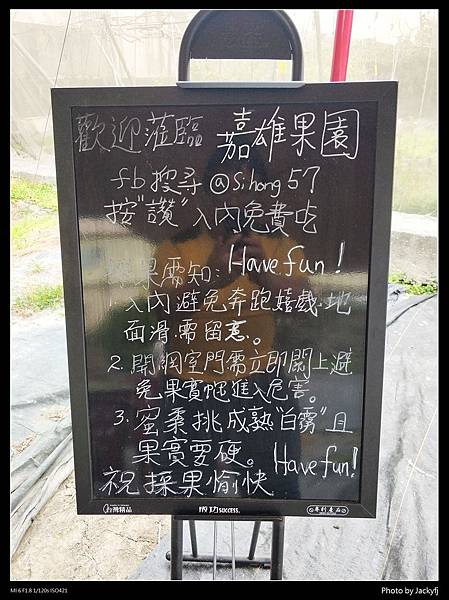 歡迎蒞臨 嘉雄果園
fb搜尋@Sihong57
按"讚"入內免費吃
果需知: Have fun!
入內避免奔跑嬉戲.地
面滑.需留意.。
2. 開網室門需立即關上避
免果實蠅進入危害。
3. 蜜棗挑成熟"白霧"且
果實要硬。 Have fun!
祝採果愉快
台灣精品
成功SUCCESS.
專利產品
MI 6 F1.8 1/120s ISO421
Photo by Jackyfj